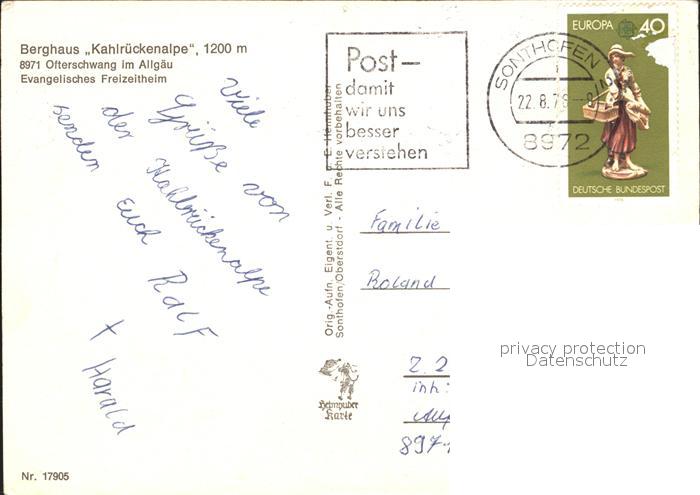 Berghaus „Kahlrückenalpe“, 1200 m
8971 Ofterschwang im Allgäu
Evangelisches Freizeitheim
Viele
Grüße von
der Kahlrückenalpe
senden Euch Ralf
+ Harald
Nr. 17905
Orig.-Aufn. Eigent. u. Verl. F. u. E. Heimhuber
Sonthofen/Oberstdorf - Alle Rechte vorbehalten
Heimhuber
Karte
Post—
damit
wir uns
besser
verstehen
SONTHOFEN
22.8.7
8972
EUROPA 40
DEUTSCHE BUNDESPOST
Familie
Roland
Z. Z
inh:
897
privacy protection
Datenschutz